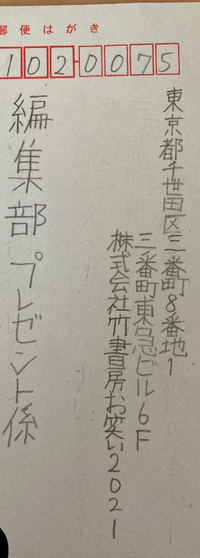 郵便はがき
102-0075
東京都千世田区三番町8番地1
三番町東急ビル6F
株式会社竹書房お笑い2021
編集部プレゼント係